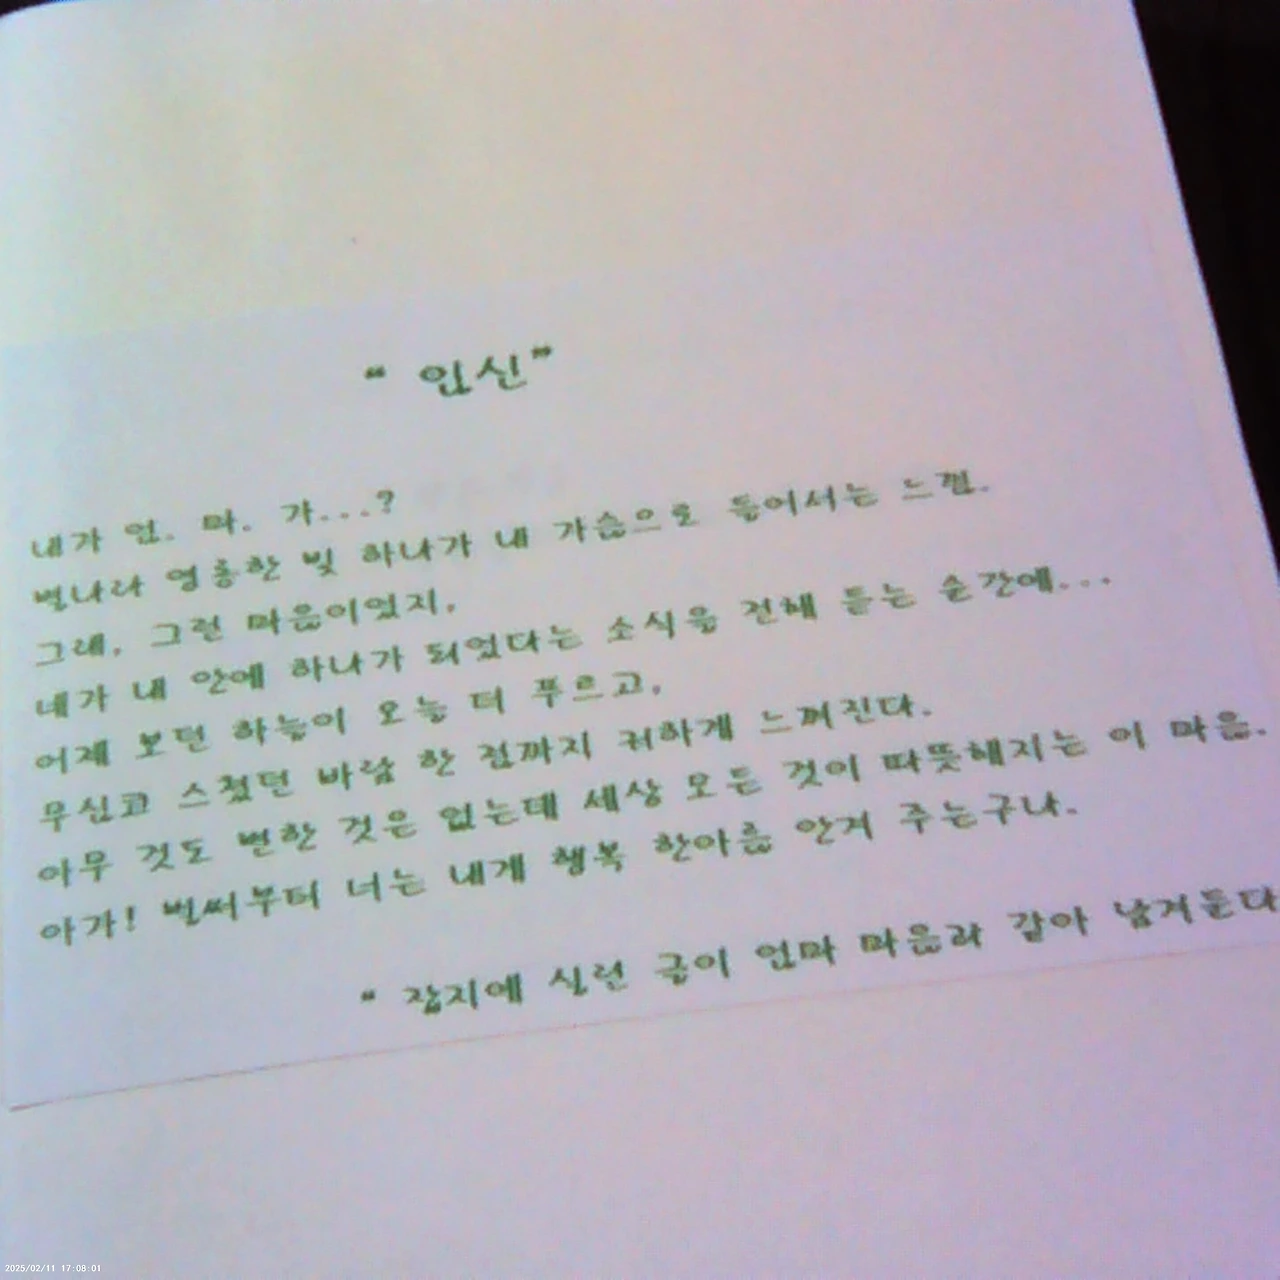 “ 임신”
내가 엄. 마. 가...?
별나라 영롱한 빛 하나가 내 가슴으로 들어서는 느낌.
그래, 그런 마음이었지.
네가 내 안에 하나가 되었다는 소식을 전해 듣는 순간에...
어제 보던 하늘이 오늘 더 푸르고,
무심코 스쳤던 바람 한 점까지 귀하게 느껴진다.
아무 것도 변한 것은 없는데 세상 모든 것이 따뜻해지는 이 마음.
아가! 벌써부터 너는 내게 행복 한아름 안겨 주는구나.
“ 잡지에 실린 글이 엄마 마음과 같아 남겨둔다
2025/02/11 17:08:01